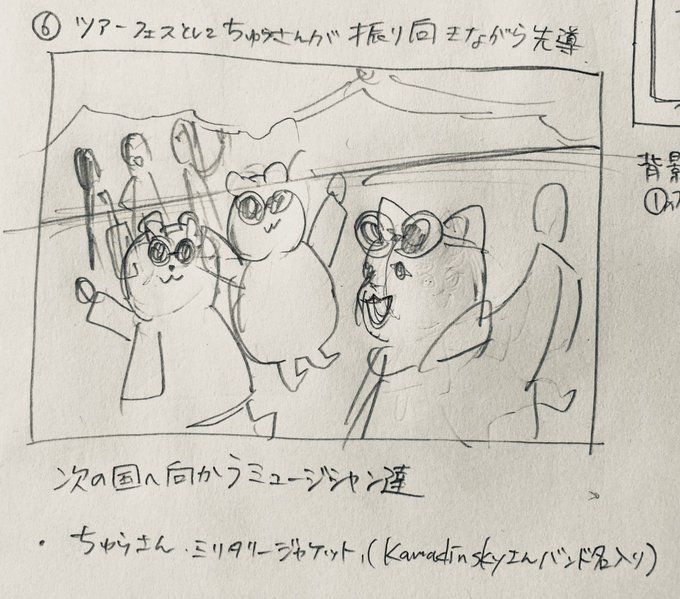 ⑥ ツアーフェスとして ちゅうさんが 振り向きながら先導
背景
①
次の国へ向かうミュージシャン達
・ちゅうさん・ミリタリージャケット,(Kamadinskyさんバンド名入り)